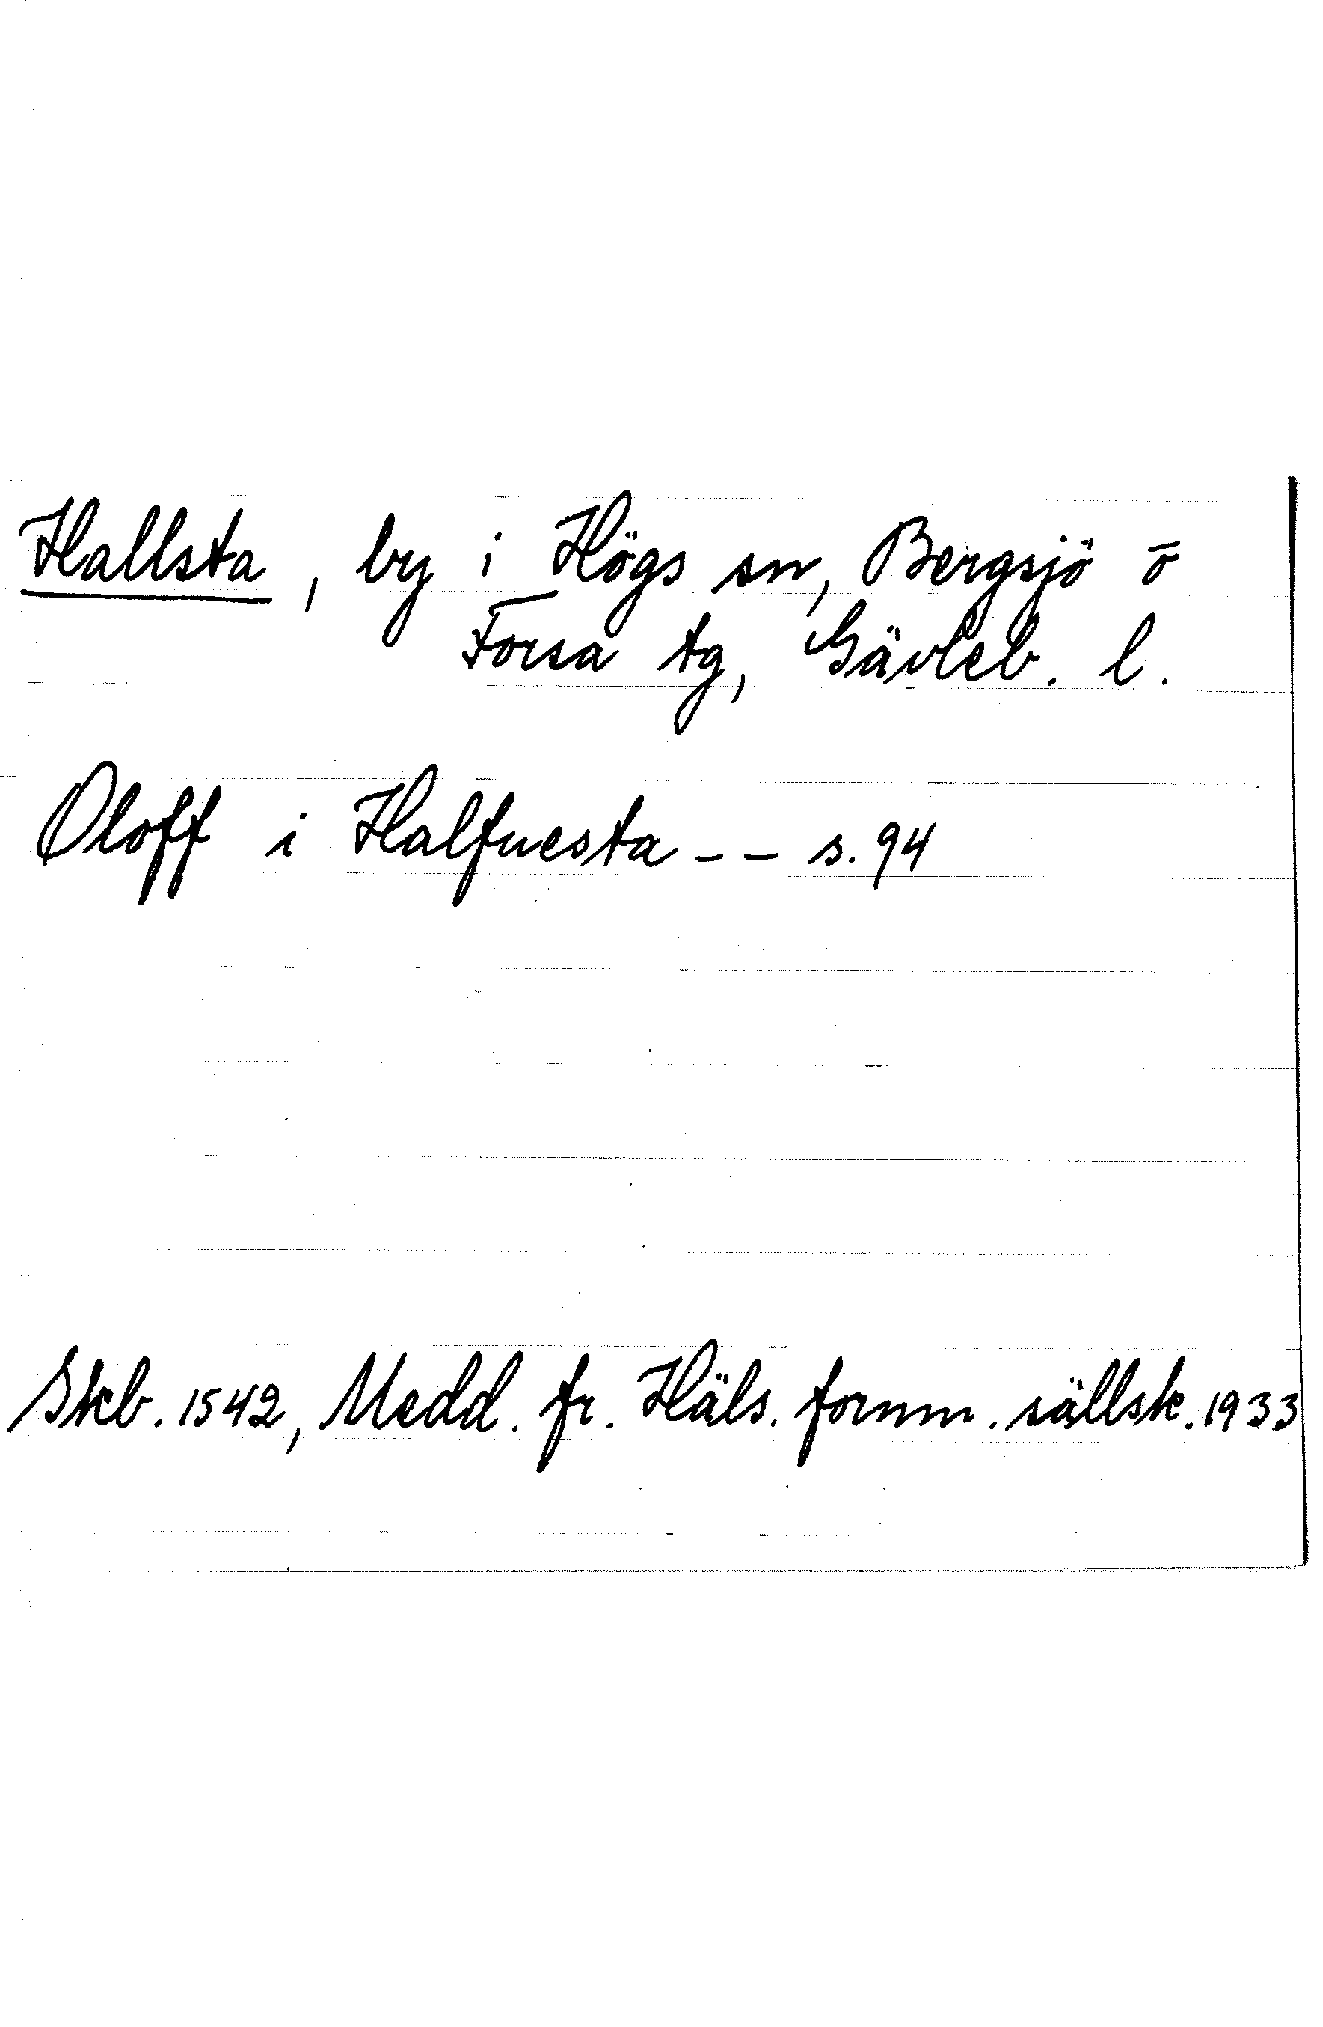 Hallsta, by i Högs sn, Bergsjö o
Forsa tg, Gävleb. l.
Oloff i Halfuesta - - s. 94
Skb. 1542, Medd. fr. Häls. fornm. sällsk. 1933